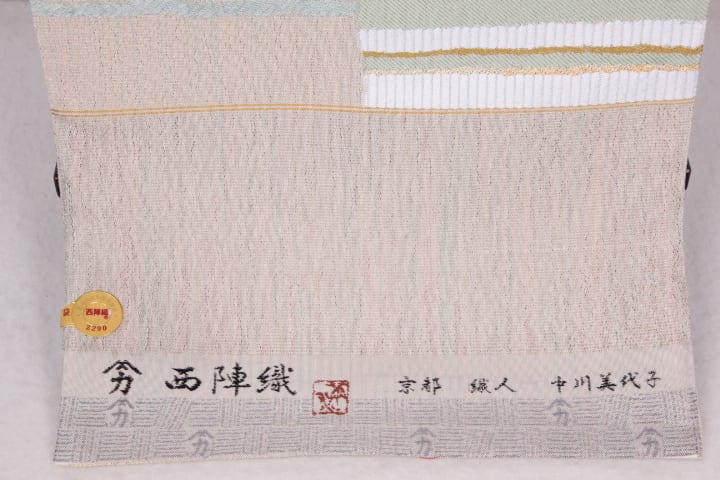 西陣織
2290
力 西陣織 京都 織人 中川美代子